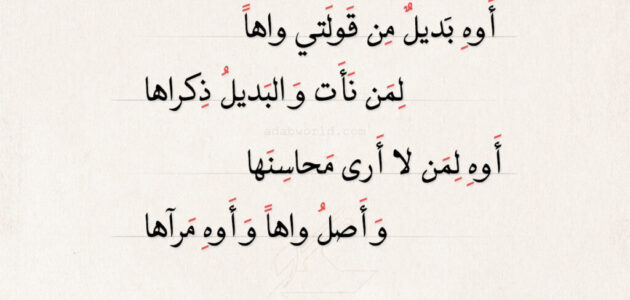 أَوهِ بَديلٌ مِن قَولَتي واهاً
لِمَن نَأَت وَالبَديلُ ذِكراها
adabworld.com
أَوهِ لِمَن لا أَرى مَحاسِنَها
وَأَصلُ واهاً وَأَوهِ مَرآها